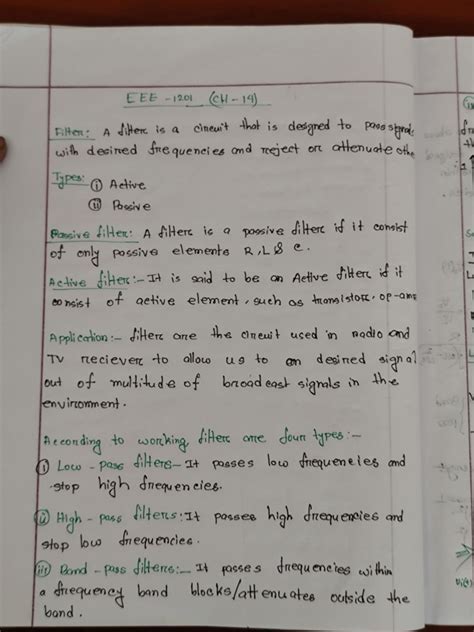 EEE - 1201 (CH - 14)
Filter: A filter is a circuit that is designed to pass signal
with desired frequencies and reject or attenuate othe
Types: (i) Active
(ii) Passive
Passive filter: A filter is a passive filter if it consist
of only passive elements R, L & C.
Active filter:- It is said to be an Active filter if it
consist of active element, such as transistor, op-amp
Application:- filter are the circuit used in radio and
TV reciever to allow us to an desired signal
out of multitude of broadcast signals in the
environment.
According to working, filter are four types:-
(i) Low - pass filters- It passes low frequencies and
stop high frequencies.
(ii) High - pass filters: It passes high frequencies and
stop low frequencies.
(iii) Band - pass filters:- It passes frequencies within
a frequency band blocks/attenuates outside the
band.